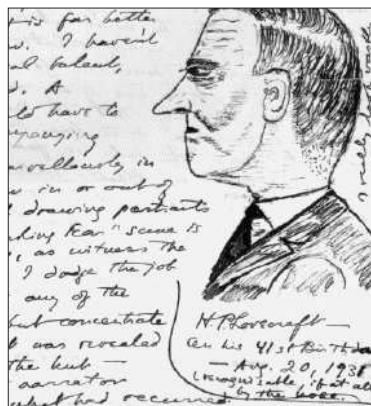 far better
I haven't
talent,
A
have to
in
in or out of
drawing portraits
Fear" scene is
, as witness the
I dodge the job
any of the
but concentrate
was revealed
the hut —
narrator
what had occurred.
H P Lovecraft —
On his 41st Birthday
— Aug. 20, 1931
(recognisable, if at all
by the nose.